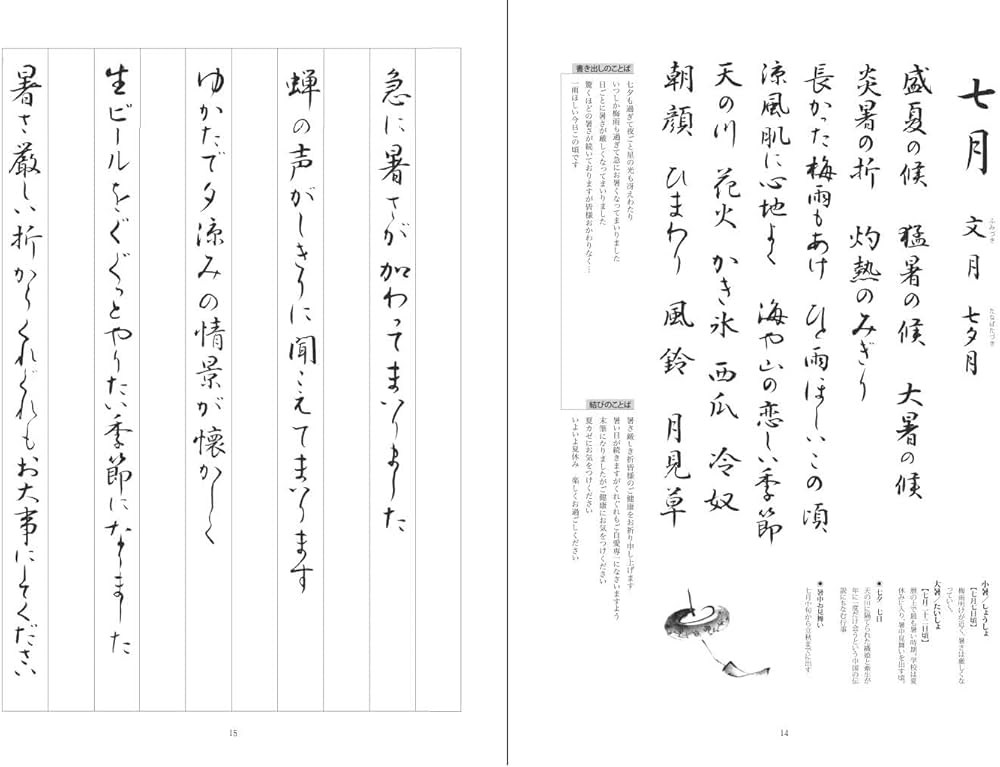 七月 文月 七夕月
ふみづき
たなばたづき
盛夏の候 猛暑の候 大暑の候
炎暑の折 灼熱のみぎり
長かった梅雨もあけ ひと雨ほしいこの頃
涼風肌に心地よく 海や山の恋しい季節
天の川 花火 かき氷 西瓜 冷奴
朝顔 ひまわり 風鈴 月見草
小暑／しょうしょ
【七月七日頃】
梅雨明けが近く、暑さは厳しくな
っていく。
大暑／たいしょ
【七月二十三日頃】
暦の上で最も暑い時期。学校は夏
休みに入り、暑中見舞いを出す頃。
◉七夕 七日
天の川に隔てられた織姫と牽牛が
年に一度だけ会うという中国の伝
説にちなむ行事
◉暑中お見舞い
七月中旬から立秋までに出す
書き出しのことば
七夕も過ぎて夜ごと星の光も冴えわたり
いつしか梅雨も過ぎて急にお暑くなってまいりました
日ごとに暑さが厳しくなってまいりました
驚くほどの暑さが続いておりますが皆様おかわりなく…
一雨ほしい今日この頃です
結びのことば
暑さ厳しき折皆様のご健康をお祈り申し上げます
暑い日が続きますがくれぐれもご自愛専一になさいますよう
末筆になりましたがご健康にお気をつけください
夏カゼにお気をつけください
いよいよ夏休み 楽しくお過ごしください
14
急に暑さが加わってまいりました
蝉の声がしきりに聞こえてまいります
ゆかたで夕涼みの情景が懐かしく
生ビールをぐぐっとやりたい季節になりました
暑さ厳しい折からくれぐれもお大事にしてください
15